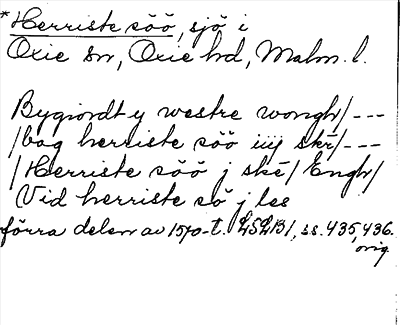 *Herriste söö, sjö i
Oxie sn, Oxie hd, Malm. l.
Bygiordt y westre wongh/ ---
/bag herriste söö iiij skr/ ---
/Herriste söö j ske/ Engh/
Vid herriste sö j les
förra delen av 1570-t. LSLB1, ss. 435, 436.
orig.